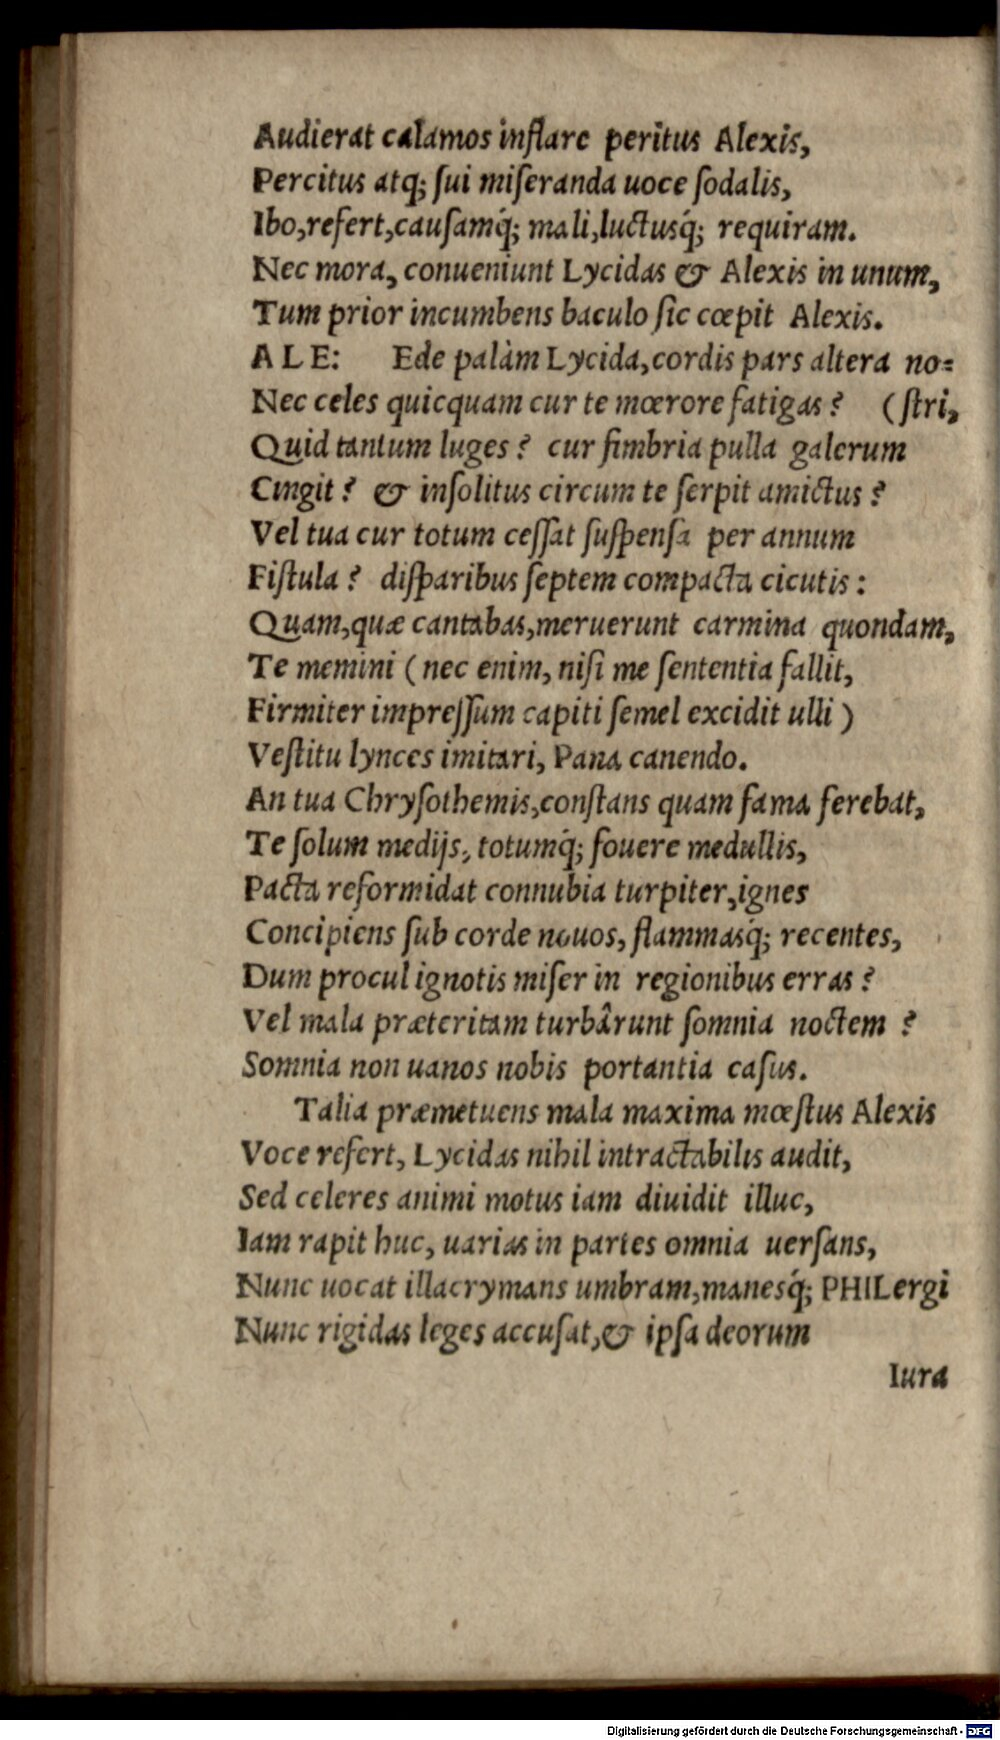 Audierat calamos inflare peritus Alexis,
Percitus atq; ſui miſeranda uoce ſodalis,
Ibo,refert,cauſamq́; mali,luctusq́; requiram.
Nec mora, conueniunt Lycidas & Alexis in unum,
Tum prior incumbens baculo ſic cœpit Alexis.
ALE: Ede palàm Lycida,cordis pars altera no=
Nec celes quicquam cur te mœrore fatigas? (ſtri,
Quid tantum luges? cur fimbria pulla galerum
Cingit? & inſolitus circum te ſerpit amictus?
Vel tua cur totum ceſſat ſuſpenſa per annum
Fiſtula? diſparibus ſeptem compacta cicutis:
Quam,quæ cantabas,meruerunt carmina quondam,
Te memini (nec enim, niſi me ſententia fallit,
Firmiter impreſſum capiti ſemel excidit ulli)
Veſtitu lynces imitari, Pana canendo.
An tua Chryſothemis,conſtans quam fama ferebat,
Te ſolum medijs, totumq́; fouere medullis,
Pacta reformidat connubia turpiter,ignes
Concipiens ſub corde nouos, flammasq́; recentes,
Dum procul ignotis miſer in regionibus erras?
Vel mala præteritam turbârunt ſomnia noctem?
Somnia non uanos nobis portantia caſus.
Talia præmetuens mala maxima mœſtus Alexis
Voce refert, Lycidas nihil intractabilis audit,
Sed celeres animi motus iam diuidit illuc,
Iam rapit huc, uarias in partes omnia uerſans,
Nunc uocat illacrymans umbram,manesq́; PHILergi
Nunc rigidas leges accuſat,& ipſa deorum
Iura
Digitalisierung gefördert durch die Deutsche Forschungsgemeinschaft - DFG